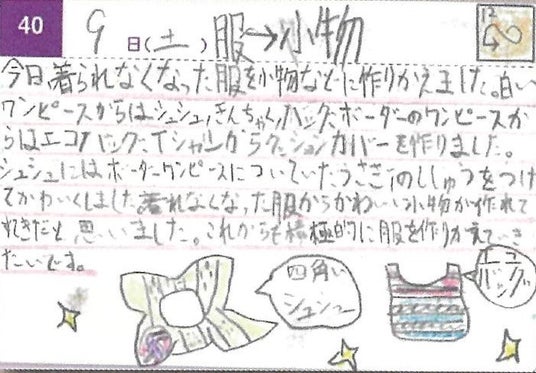 40 9日(土) 服→小物 12
今日着られなくなった服を小物などに作りかえました。白い
ワンピースからはシュシュ、きんちゃく、バック、ボーダーのワンピースか
らはエコバック、Tシャツからクッションカバーを作りました。
シュシュにはボーダーワンピースについていたうさぎのししゅうをつけ
てかわいくしました。着れなくなった服からかわいい小物が作れて
すてきだと思いました。これからも積極的に服を作りかえていき
たいです。
四角い
シュシュ
エコ
バッグ